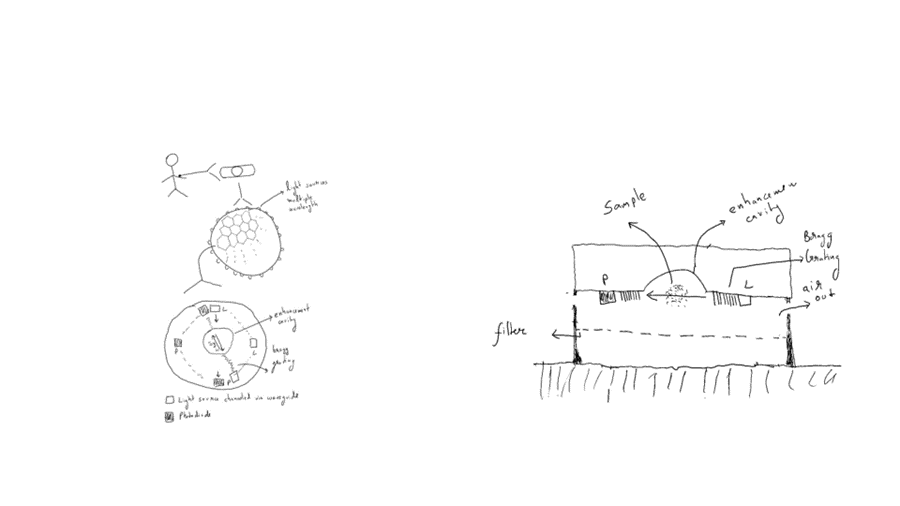 light sources
multiple
wavelength
enhancement
cavity
P
L
bragg
grating
P
Light source channeled via waveguide
Photodiode
Sample
enhancement
cavity
Bragg
Grating
P
L
air
out
filter